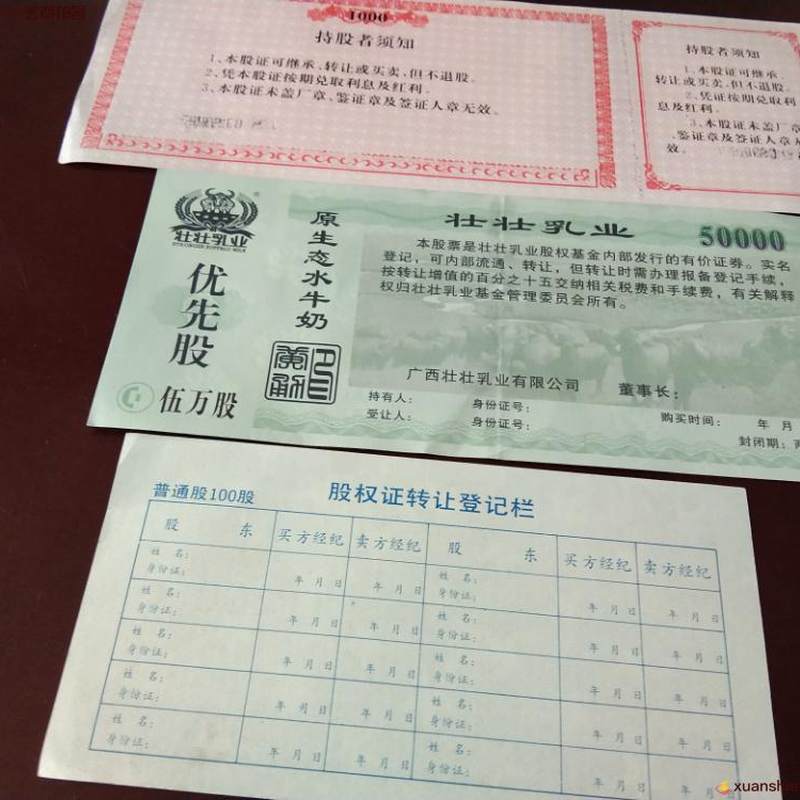 1000
持股者须知
1、本股证可继承、转让或买卖，但不退股。
2、凭本股证按期兑取利息及红利。
3、本股证未盖厂章、鉴证章及签证人章无效。
持股者须知
1、本股证可继承、
转让或买卖，但不退股。
2、凭证按期兑取利
息及红利。
3、本股证未盖厂章
、鉴证章及签证人章无
效。
壮壮乳业
优先股
伍万股
原生态水牛奶
壮壮乳业
50000
本股票是壮壮乳业股权基金内部发行的有价证券。实名
登记，可内部流通、转让，但转让时需办理报备登记手续，
按转让增值的百分之十五交纳相关税费和手续费，有关解释
权归壮壮乳业基金管理委员会所有。
广西壮壮乳业有限公司 董事长：
持有人： 身份证号： 购买时间： 年 月
受让人： 身份证号： 封闭期：
普通股100股 股权证转让登记栏
股 东 买方经纪 卖方经纪 股 东 买方经纪 卖方经纪
姓 名： 姓 名：
身份证： 年 月 日 年 月 日 身份证： 年 月 日 年 月 日
姓 名： 姓 名：
身份证： 年 月 日 年 月 日 身份证： 年 月 日 年 月 日
姓 名： 姓 名：
身份证： 年 月 日 年 月 日 身份证： 年 月 日 年 月 日
姓 名： 姓 名：
身份证： 年 月 日 年 月 日 身份证： 年 月 日 年 月 日
姓 名： 姓 名：
身份证： 年 月 日 年 月 日 身份证： 年 月 日 年 月 日